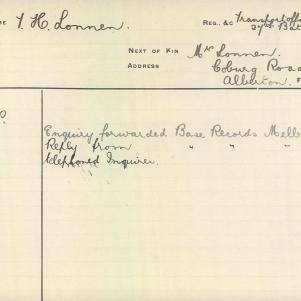 ME T. H. Lonnen. REG., &C. Transport off
27th Bat
NEXT OF KIN Mrs Lonnen.
ADDRESS Coburg Road
Alberton.
Enquiry forwarded Base Records Melb
Reply from " " "
telephoned Inquirer.